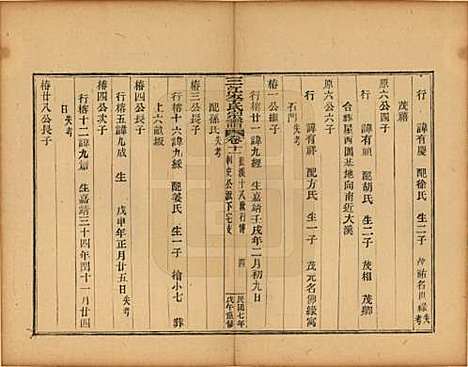 茂禧
行 諱有慶 配徐氏 生一子
原六公四子
行 諱有順 配胡氏 生二子 茂相 茂卿
合葬屋西園基地向南近大溪
原六公六子
行 諱有祥 配方氏 生一子 茂元名佛緣寓
石門 失考
椿一公繼子
行榕廿一諱九經 生嘉靖壬戌年二月初九日
配孫氏 失考
三江李氏宗譜 卷十一
民國七年
戊午重修
椿三公長子
行榕十六諱九 配姜氏 生一子 檜小七 葬
上六畝
椿四公次子
行榕五諱九成 生 戊申年正月廿五日 失考
椿四公長子
行榕十二諱九 生嘉靖三十四年閏十一月廿四
日 失考
椿廿八公長子